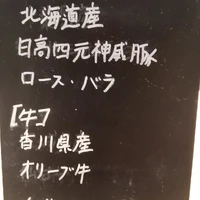 北海道産
日高四元神威豚
ロース・バラ
[牛]
香川県産
オリーブ牛